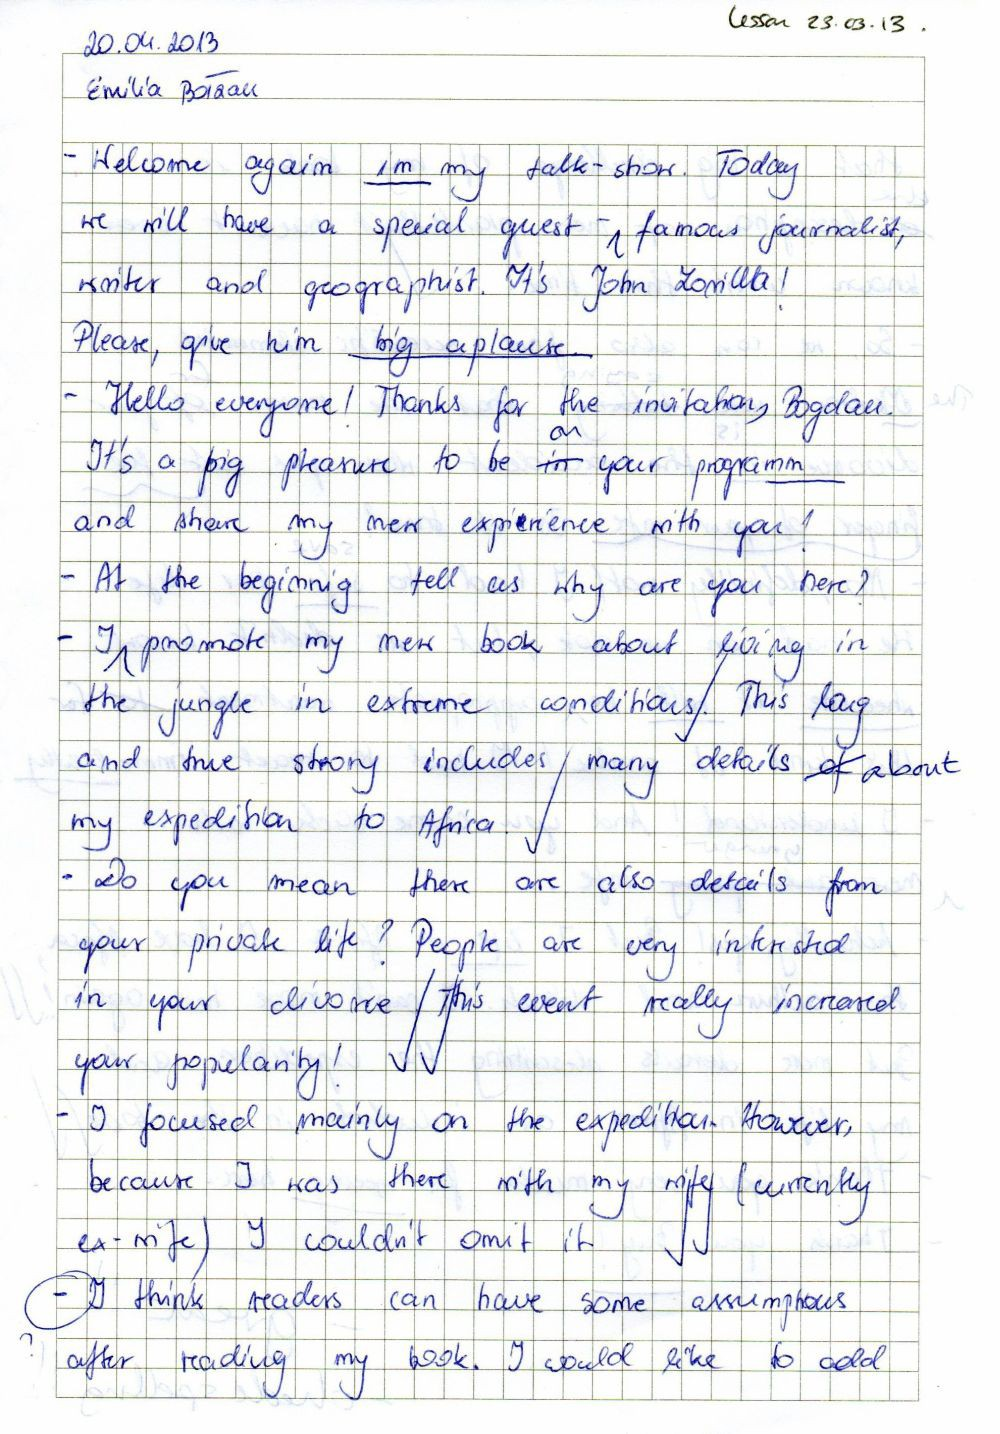 Lesson 23.03.13.
20.04.2013
Emilia
- Welcome again im my talk-show. Today
we will have a special guest - famous journalist,
writer and geographist. It's John Zorilla!
Please, give him big aplause.
- Hello everyone! Thanks for the invitation, Bogdan.
on
It's a big pleasure to be in your programm
and share my new experience with you!
- At the beginnig tell us why are you here?
- I promote my new book about living in
the jungle in extreme conditions. This long
and true strory includes many details of about
my expedition to Africa.
- Do you mean there are also details from
your private life? People are very interested
in your divorce This event really increased
your popularity!
- I focused mainly on the expedition. However,
because I was there with my wife (currently
ex-wife) I couldn't omit it
- I think readers can have some assumptions
? after reading my book. I would like to add